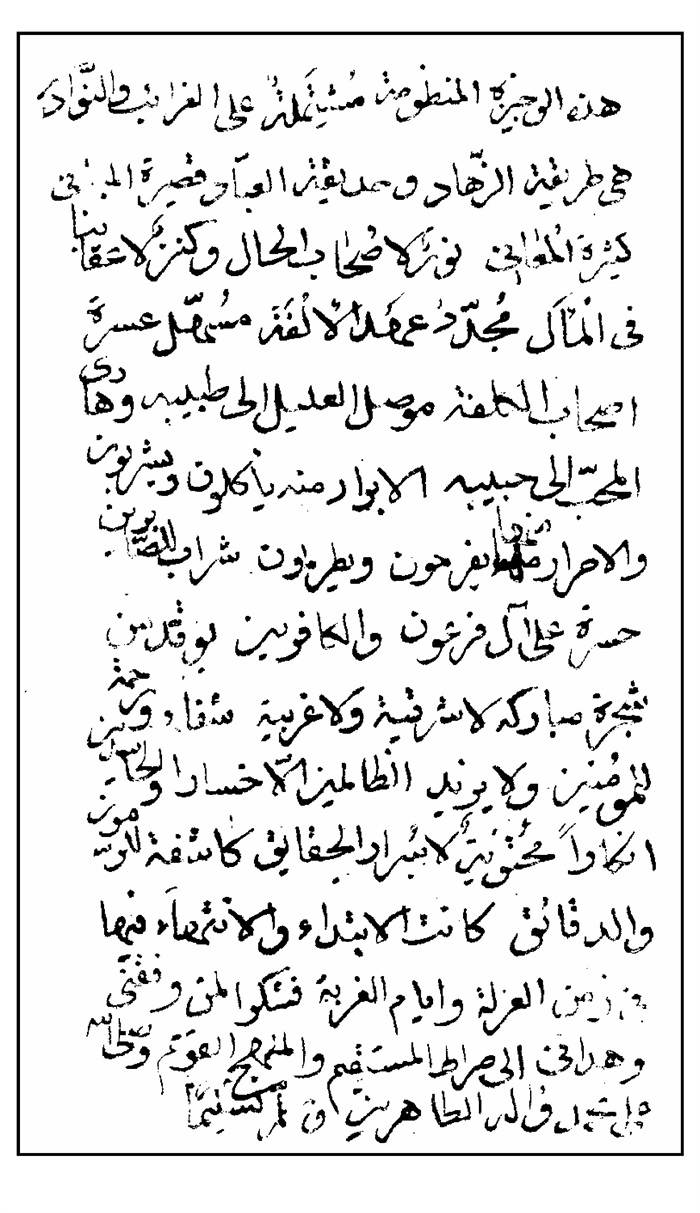 هذه الوجيزة المنظومة مُشتَمِلَةٌ على الغرائب والنَّوادر
هى طريقة الزّهاد وحديقة العبّاد قصيرة المبنى
كثيرة المَعانى نورٌ لاصْحاب الحال وكنزٌ لاعقابنا
فى الْمَآل مُجدِّدُ عهد الالْفَة مسُهّل عسرة
اصحاب الكلفة موصل العليل الى طبيبه وهادى
المحبّ الى حبيبه الابرار منه يأكلون ويشربون
والاحرار منها يفرحون ويطربون شراب للصّابرين
حسرة على آل فرعون والكافرين يوقد من
شجرة مباركه لا شرقية ولا غربية شفاء ورحمة
للمؤمنين ولا يزيد الظالمين الّا خسارا وللجاحدين
انكاراً محُتْويَةٌ لاسْرار الحقايق كاشفة لرموز
والدقائق كانت الابتداء والانتهاء فيها
فى زمن العزلة وايام الغربة فشكرا لمن وفقنى
وهدانى الى صراط المستقيم والمنهج القويم وصلى الله
على محمد وآله الطاهرين وسلّم تسليمًا